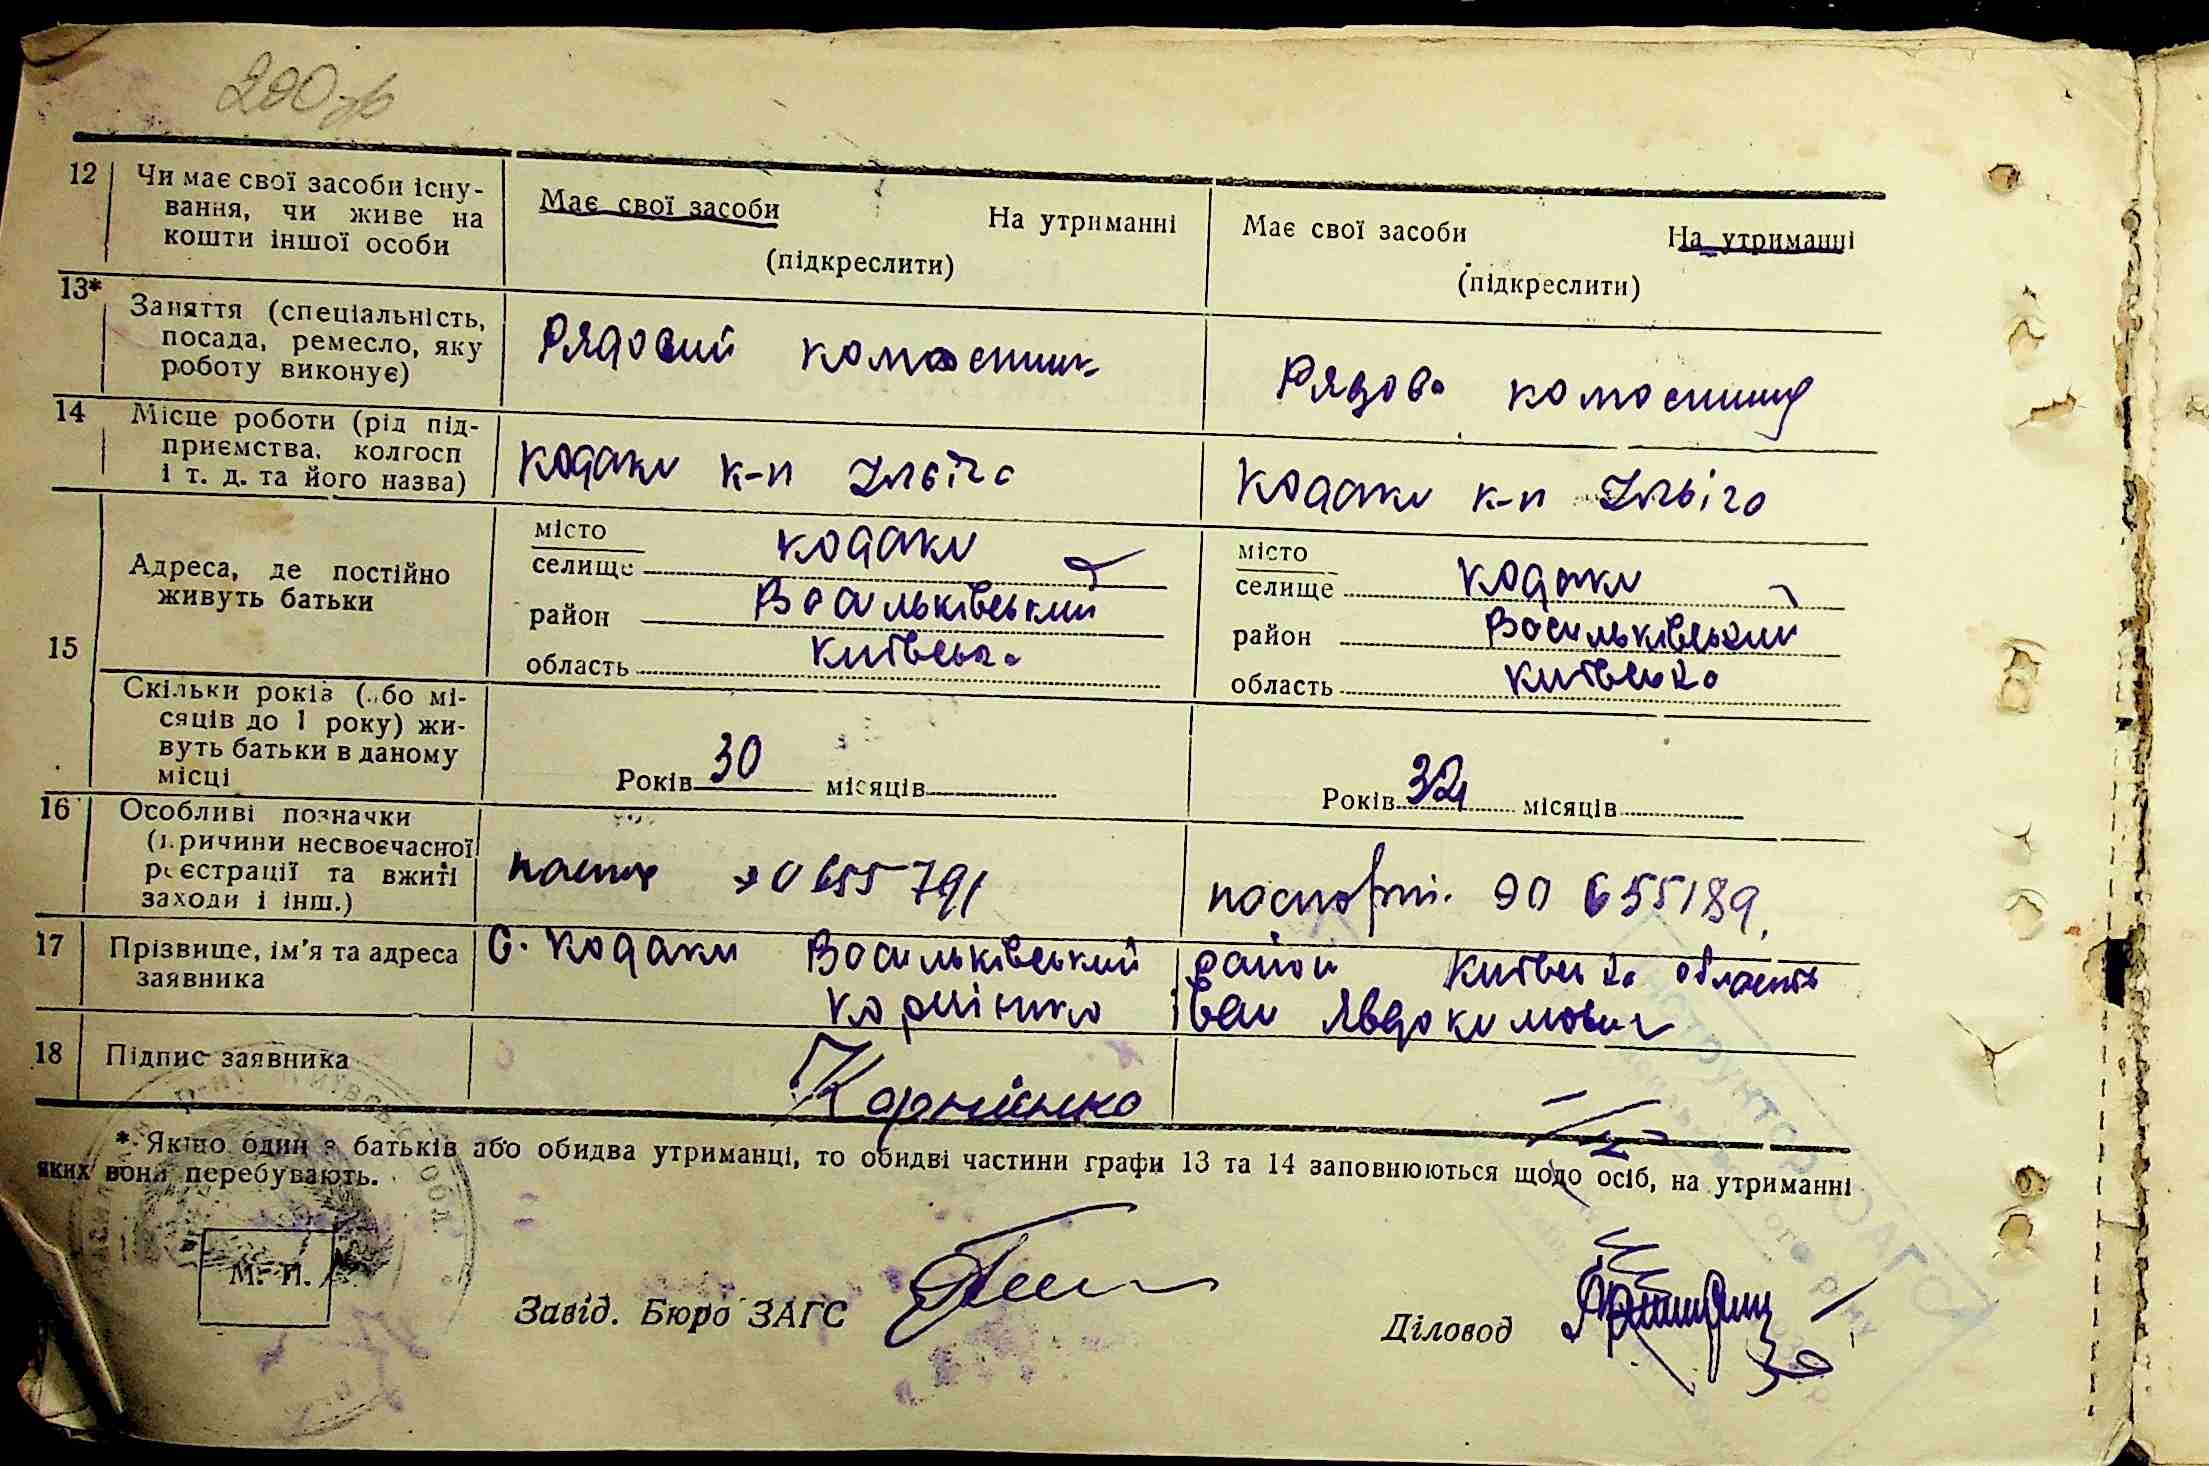 200 гр
12 Чи має свої засоби існу-
вання, чи живе на
кошти іншої особи
Має свої засоби На утриманні
(підкреслити)
Має свої засоби На утриманні
(підкреслити)
13* Заняття (спеціальність,
посада, ремесло, яку
роботу виконує)
Рядовий
Рядова
14 Місце роботи (рід під-
приємства, колгосп
і т. д. та його назва)
Кодаки к-п Ілліча
Кодаки к-п Ілліча
15 Адреса, де постійно
живуть батьки
місто
селище Кодаки
район Васильківський
область Київська
місто
селище Кодаки
район Васильківський
область Київська
Скільки років (або мі-
сяців до 1 року) жи-
вуть батьки в даному
місці
Років 30 місяців
Років 32 місяців
16 Особливі позначки
(причини несвоєчасної
реєстрації та вжиті
заходи і інш.)
655791
паспорт. 90 655189
17 Прізвище, ім'я та адреса
заявника
с. Кодаки Васильківський район Київська область
Корнієнко Іван Явдокимович
18 Підпис заявника
Корнієнко
* Якщо один з батьків або обидва утриманці, то обидві частини графи 13 та 14 заповнюються щодо осіб, на утриманні
яких вони перебувають.
М. П.
Завід. Бюро ЗАГС
Діловод